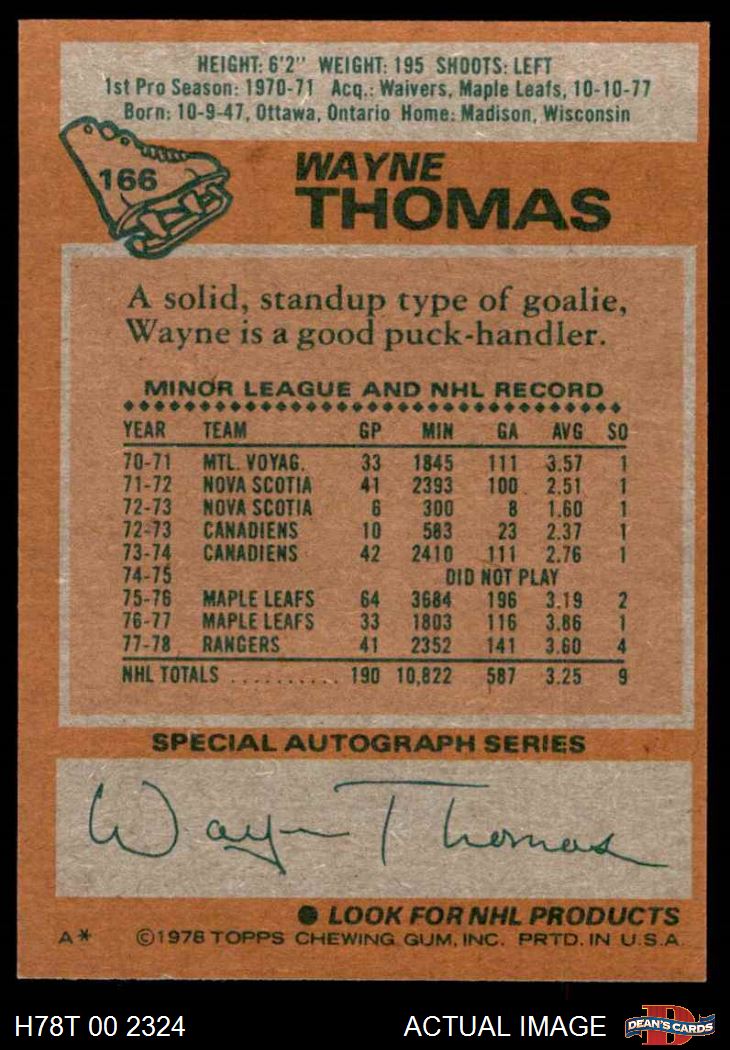 HEIGHT: 6'2" WEIGHT: 195 SHOOTS: LEFT
1st Pro Season: 1970-71 Acq.: Waivers, Maple Leafs, 10-10-77
Born: 10-9-47, Ottawa, Ontario Home: Madison, Wisconsin
166
WAYNE
THOMAS
A solid, standup type of goalie,
Wayne is a good puck-handler.
MINOR LEAGUE AND NHL RECORD
YEAR TEAM GP MIN GA AVG SO
70-71 MTL. VOYAG. 33 1845 111 3.57 1
71-72 NOVA SCOTIA 41 2393 100 2.51 1
72-73 NOVA SCOTIA 6 300 8 1.60 1
72-73 CANADIENS 10 583 23 2.37 1
73-74 CANADIENS 42 2410 111 2.76 1
74-75 DID NOT PLAY
75-76 MAPLE LEAFS 64 3684 196 3.19 2
76-77 MAPLE LEAFS 33 1803 116 3.86 1
77-78 RANGERS 41 2352 141 3.60 4
NHL TOTALS .......... 190 10,822 587 3.25 9
SPECIAL AUTOGRAPH SERIES
Wayne Thomas
● LOOK FOR NHL PRODUCTS
A* ©1978 TOPPS CHEWING GUM, INC. PRTD. IN U.S.A.
H78T 00 2324 ACTUAL IMAGE
D
DEAN'S CARDS